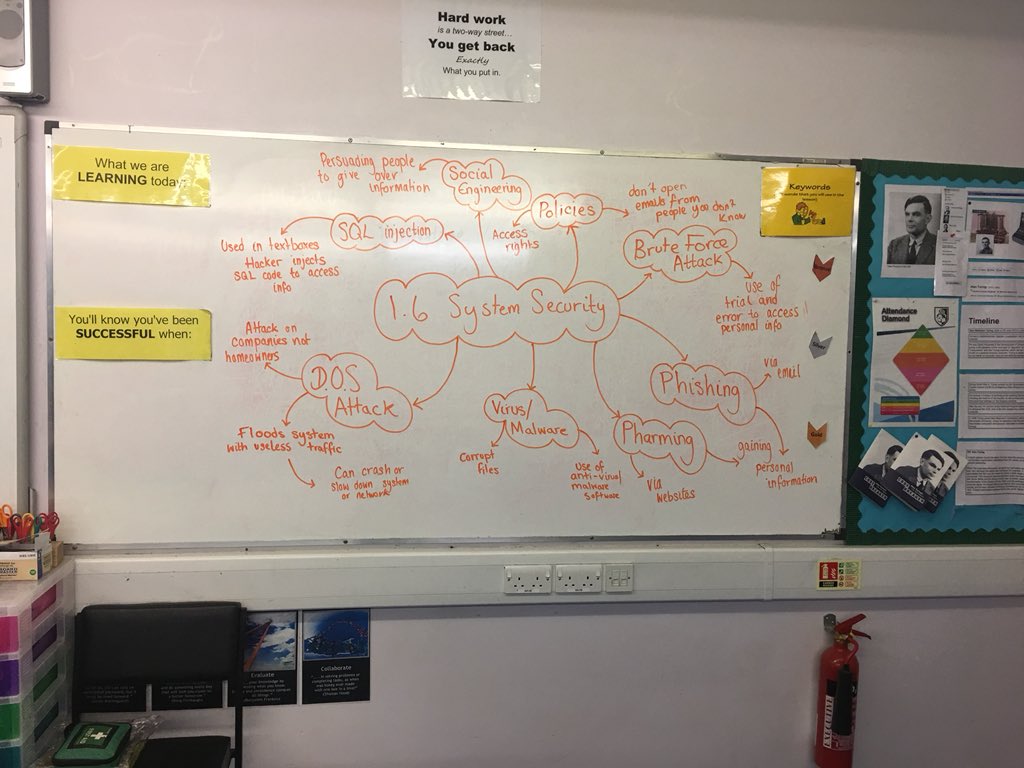 Hard work
is a two-way street...
You get back
Exactly
What you put in.
What we are
LEARNING today:
You'll know you've been
SUCCESSFUL when:
Keywords
1.6 System Security
Social
Engineering
Persuading people
to give over
information
Policies
Access
rights
don't open
emails from
people you don't
know
SQL injection
Used in textboxes
Hacker injects
SQL code to access
info
Brute Force
Attack
use of
trial and
error to access
personal info
D.O.S
Attack
Attack on
companies not
homeowners
Floods system
with useless traffic
Can crash or
slow down system
or network
Virus/
Malware
Corrupt
files
use of
anti-virus/
malware
software
Pharming
via
websites
Phishing
via
email
gaining
personal
information
Attendance
Diamond
Timeline
Evaluate
Collaborate
EXECUTIVE